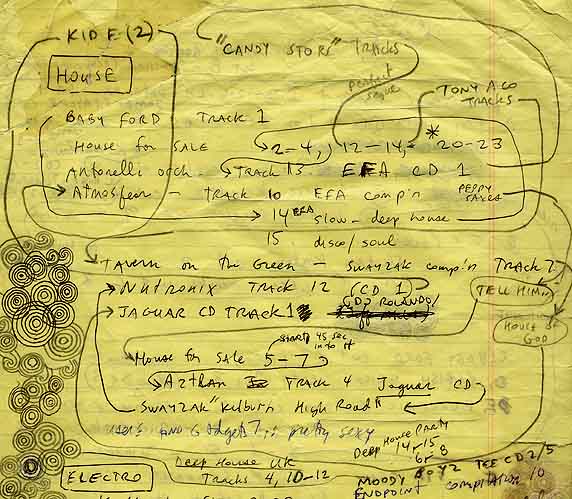 KID E (2)
"CANDY STORE" TRACKS
perfect segue
HOUSE
TONY & CO TRACKS
BABY FORD TRACK 1
HOUSE FOR SALE 2-4, 12-14, * 20-23
Antonelli orch. → TRACK 13 EFA CD 1
Atmosfear - TRACK 10 EFA comp'n PEPPY SAXES
→ 14 EFA slow - deep house
15 disco/soul
TAVERN ON the GREEN - SWAYZAK comp'n TRACK 7
NUTRONIX TRACK 12 (CD 1) TELL HIM
→ JAGUAR CD TRACK 1 (DJ ROLANDO/
HOUSE OF GOD
START 45 sec into it
→ House for SALE 5-7
→ Aztlan TRACK 4 Jaguar CD
SWAYZAK "Kilburn High Road"
Users AND Gadgets 7 is pretty sexy
Deep House Party
14-15
6-8
ELECTRO
Deep House UK
Tracks 4, 10-12
MOODY BOYZ CD 2/5
ENDPOINT compilation 10